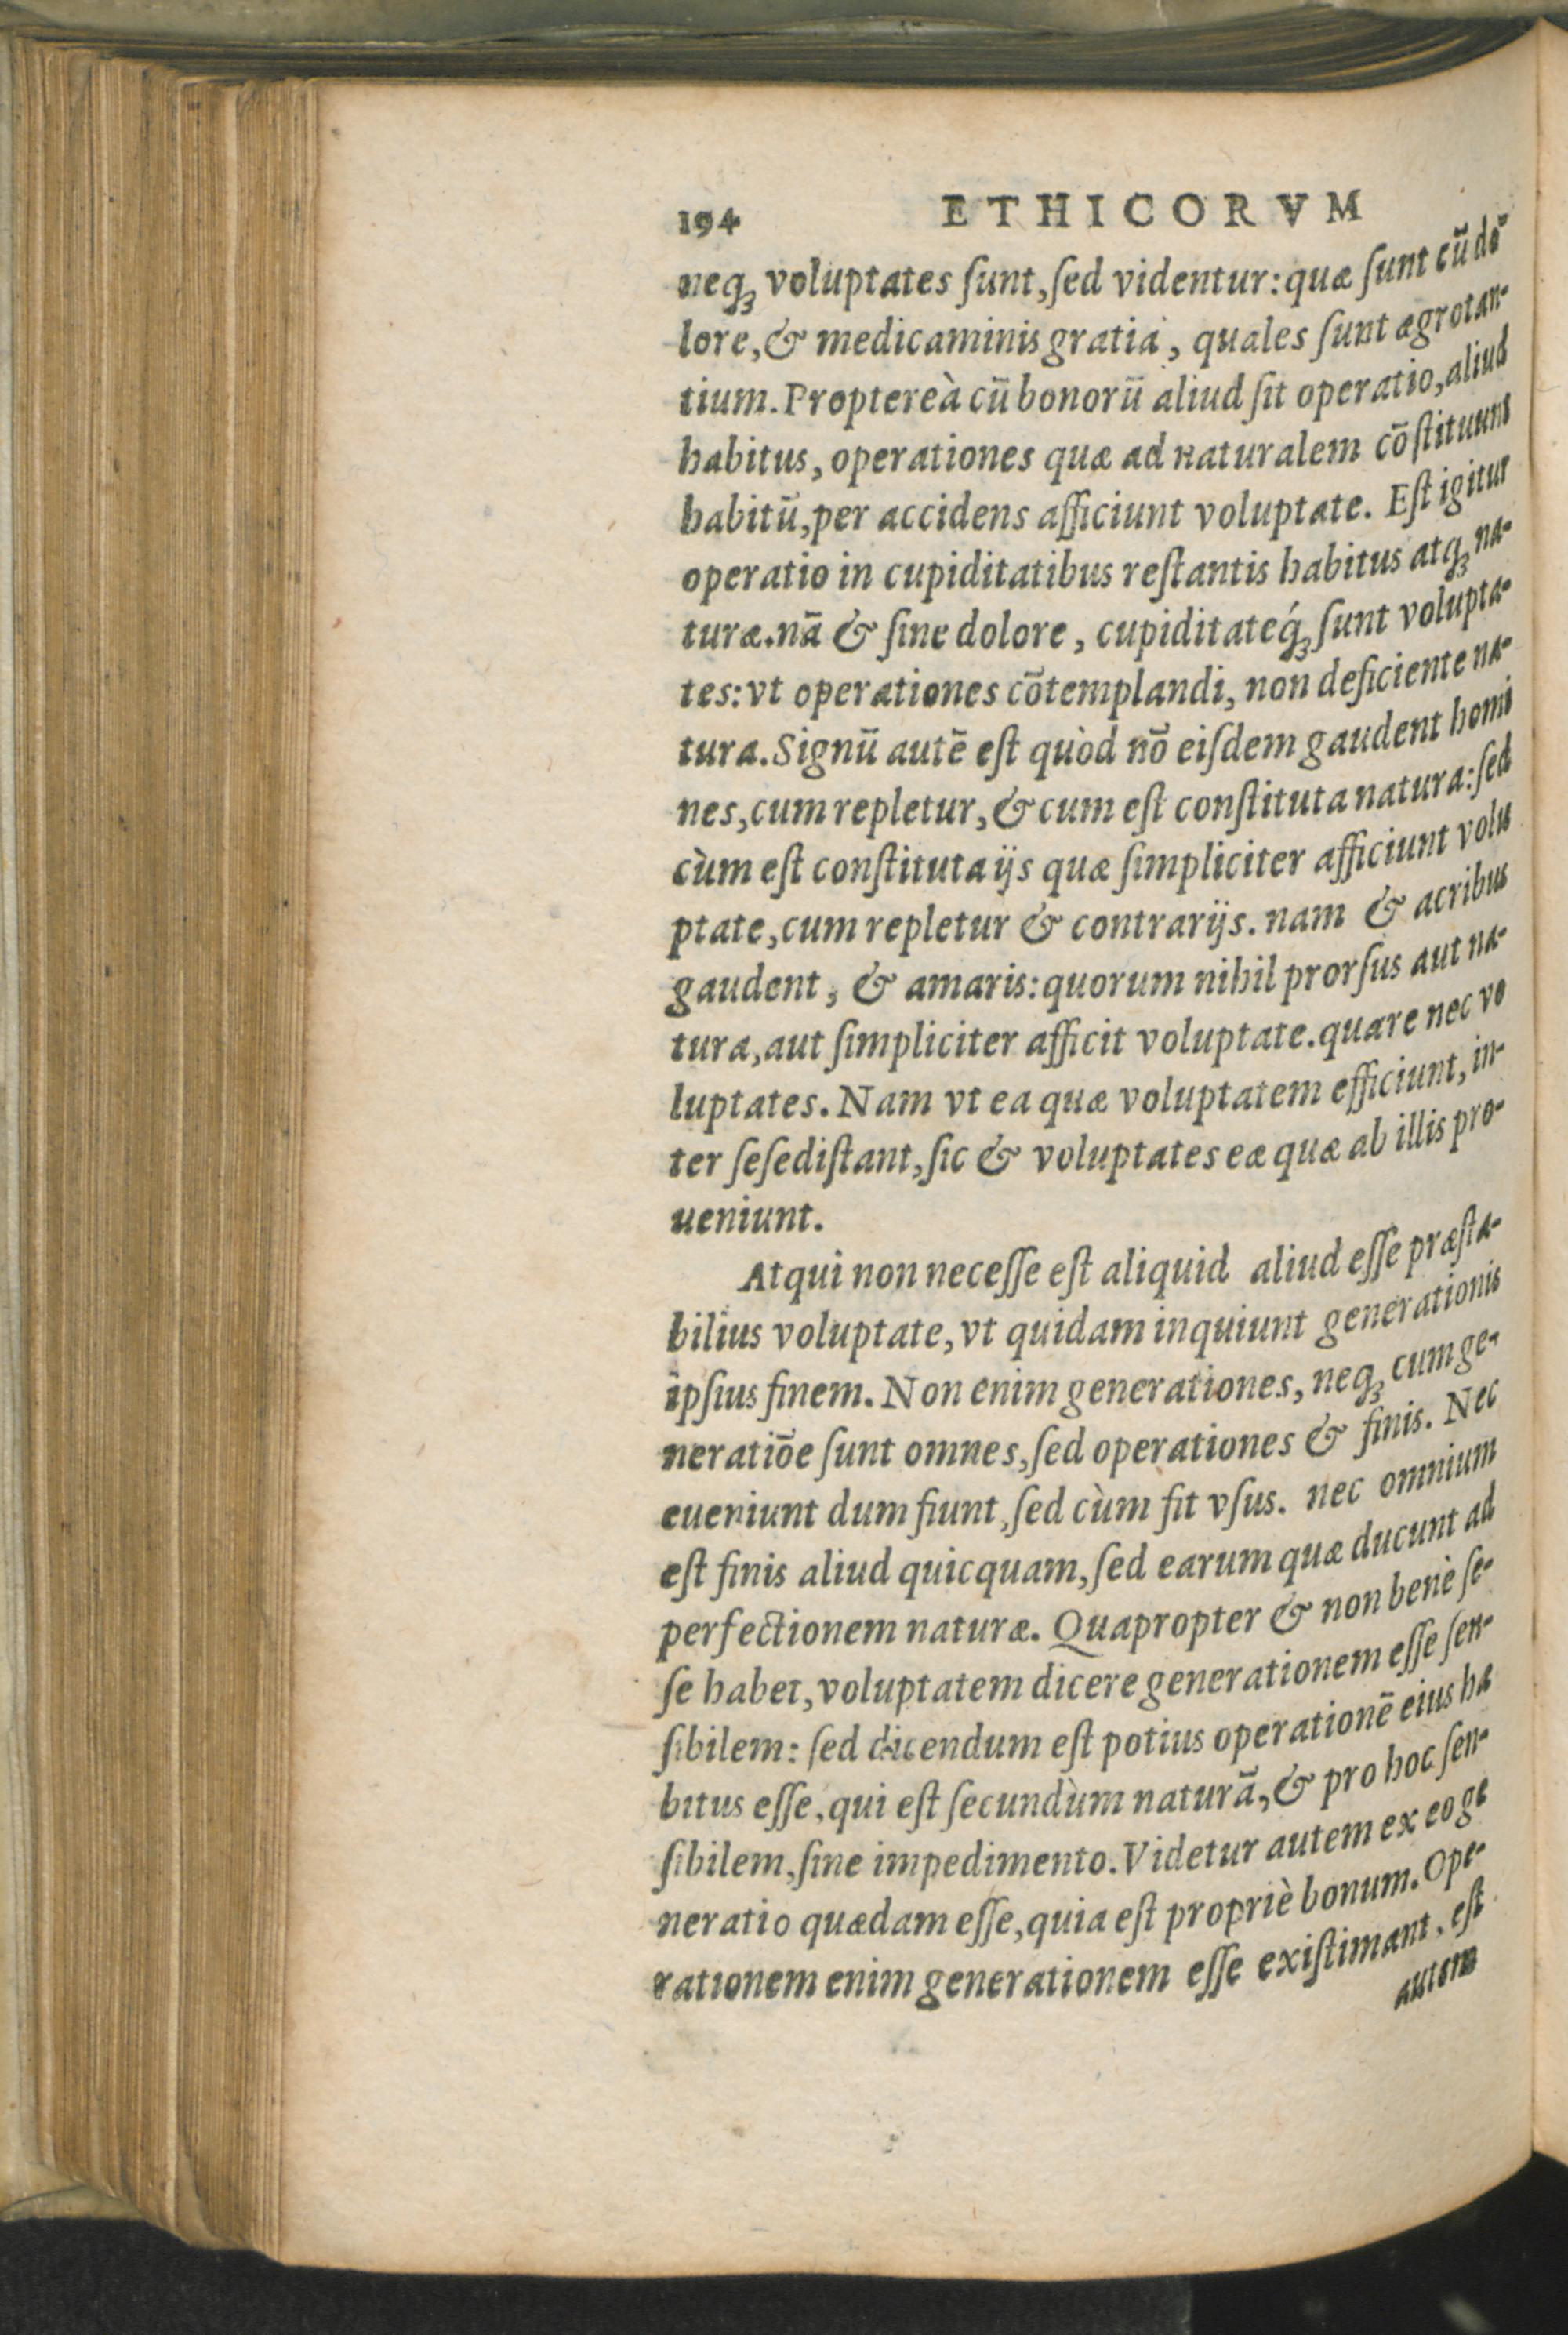 194 ETHICORVM
neq; voluptates ſunt, ſed videntur: quæ ſunt cū do-
lore, & medicaminis gratia, quales ſunt ægrotan-
tium. Proptereà cū bonorū aliud ſit operatio, aliud
habitus, operationes quæ ad naturalem cōſtituunt
habitū, per accidens afficiunt voluptate. Eſt igitur
operatio in cupiditatibus reſtantis habitus atq; na-
turæ. nā & ſine dolore, cupiditateq́; ſunt volupta-
tes: vt operationes cōtemplandi, non deficiente na-
tura. Signū autē eſt quòd nō eiſdem gaudent homi
nes, cum repletur, & cum eſt conſtituta natura: ſed
cùm eſt conſtituta ijs quæ ſimpliciter afficiunt volu
ptate, cum repletur & contrarijs. nam & acribus
gaudent, & amaris: quorum nihil prorſus aut na-
tura, aut ſimpliciter afficit voluptate. quare nec vo
luptates. Nam vt ea quæ voluptatem efficiunt, in-
ter ſeſe diſtant, ſic & voluptates eæ quæ ab illis pro-
ueniunt.
Atqui non neceſſe eſt aliquid aliud eſſe præſta-
bilius voluptate, vt quidam inquiunt generationis
ipſius finem. Non enim generationes, neq; cum ge-
neratiōe ſunt omnes, ſed operationes & finis. Nec
eueniunt dum fiunt, ſed cùm fit vſus. nec omnium
eſt finis aliud quicquam, ſed earum quæ ducunt ad
perfectionem naturæ. Quapropter & non benè ſe-
ſe habet, voluptatem dicere generationem eſſe ſen-
ſibilem: ſed dicendum eſt potius operationē eius ha
bitus eſſe, qui eſt ſecundùm naturā, & pro hoc ſen-
ſibilem, ſine impedimento. Videtur autem ex eo ge
neratio quædam eſſe, quia eſt propriè bonum. Ope-
rationem enim generationem eſſe exiſtimant, eſt
autem